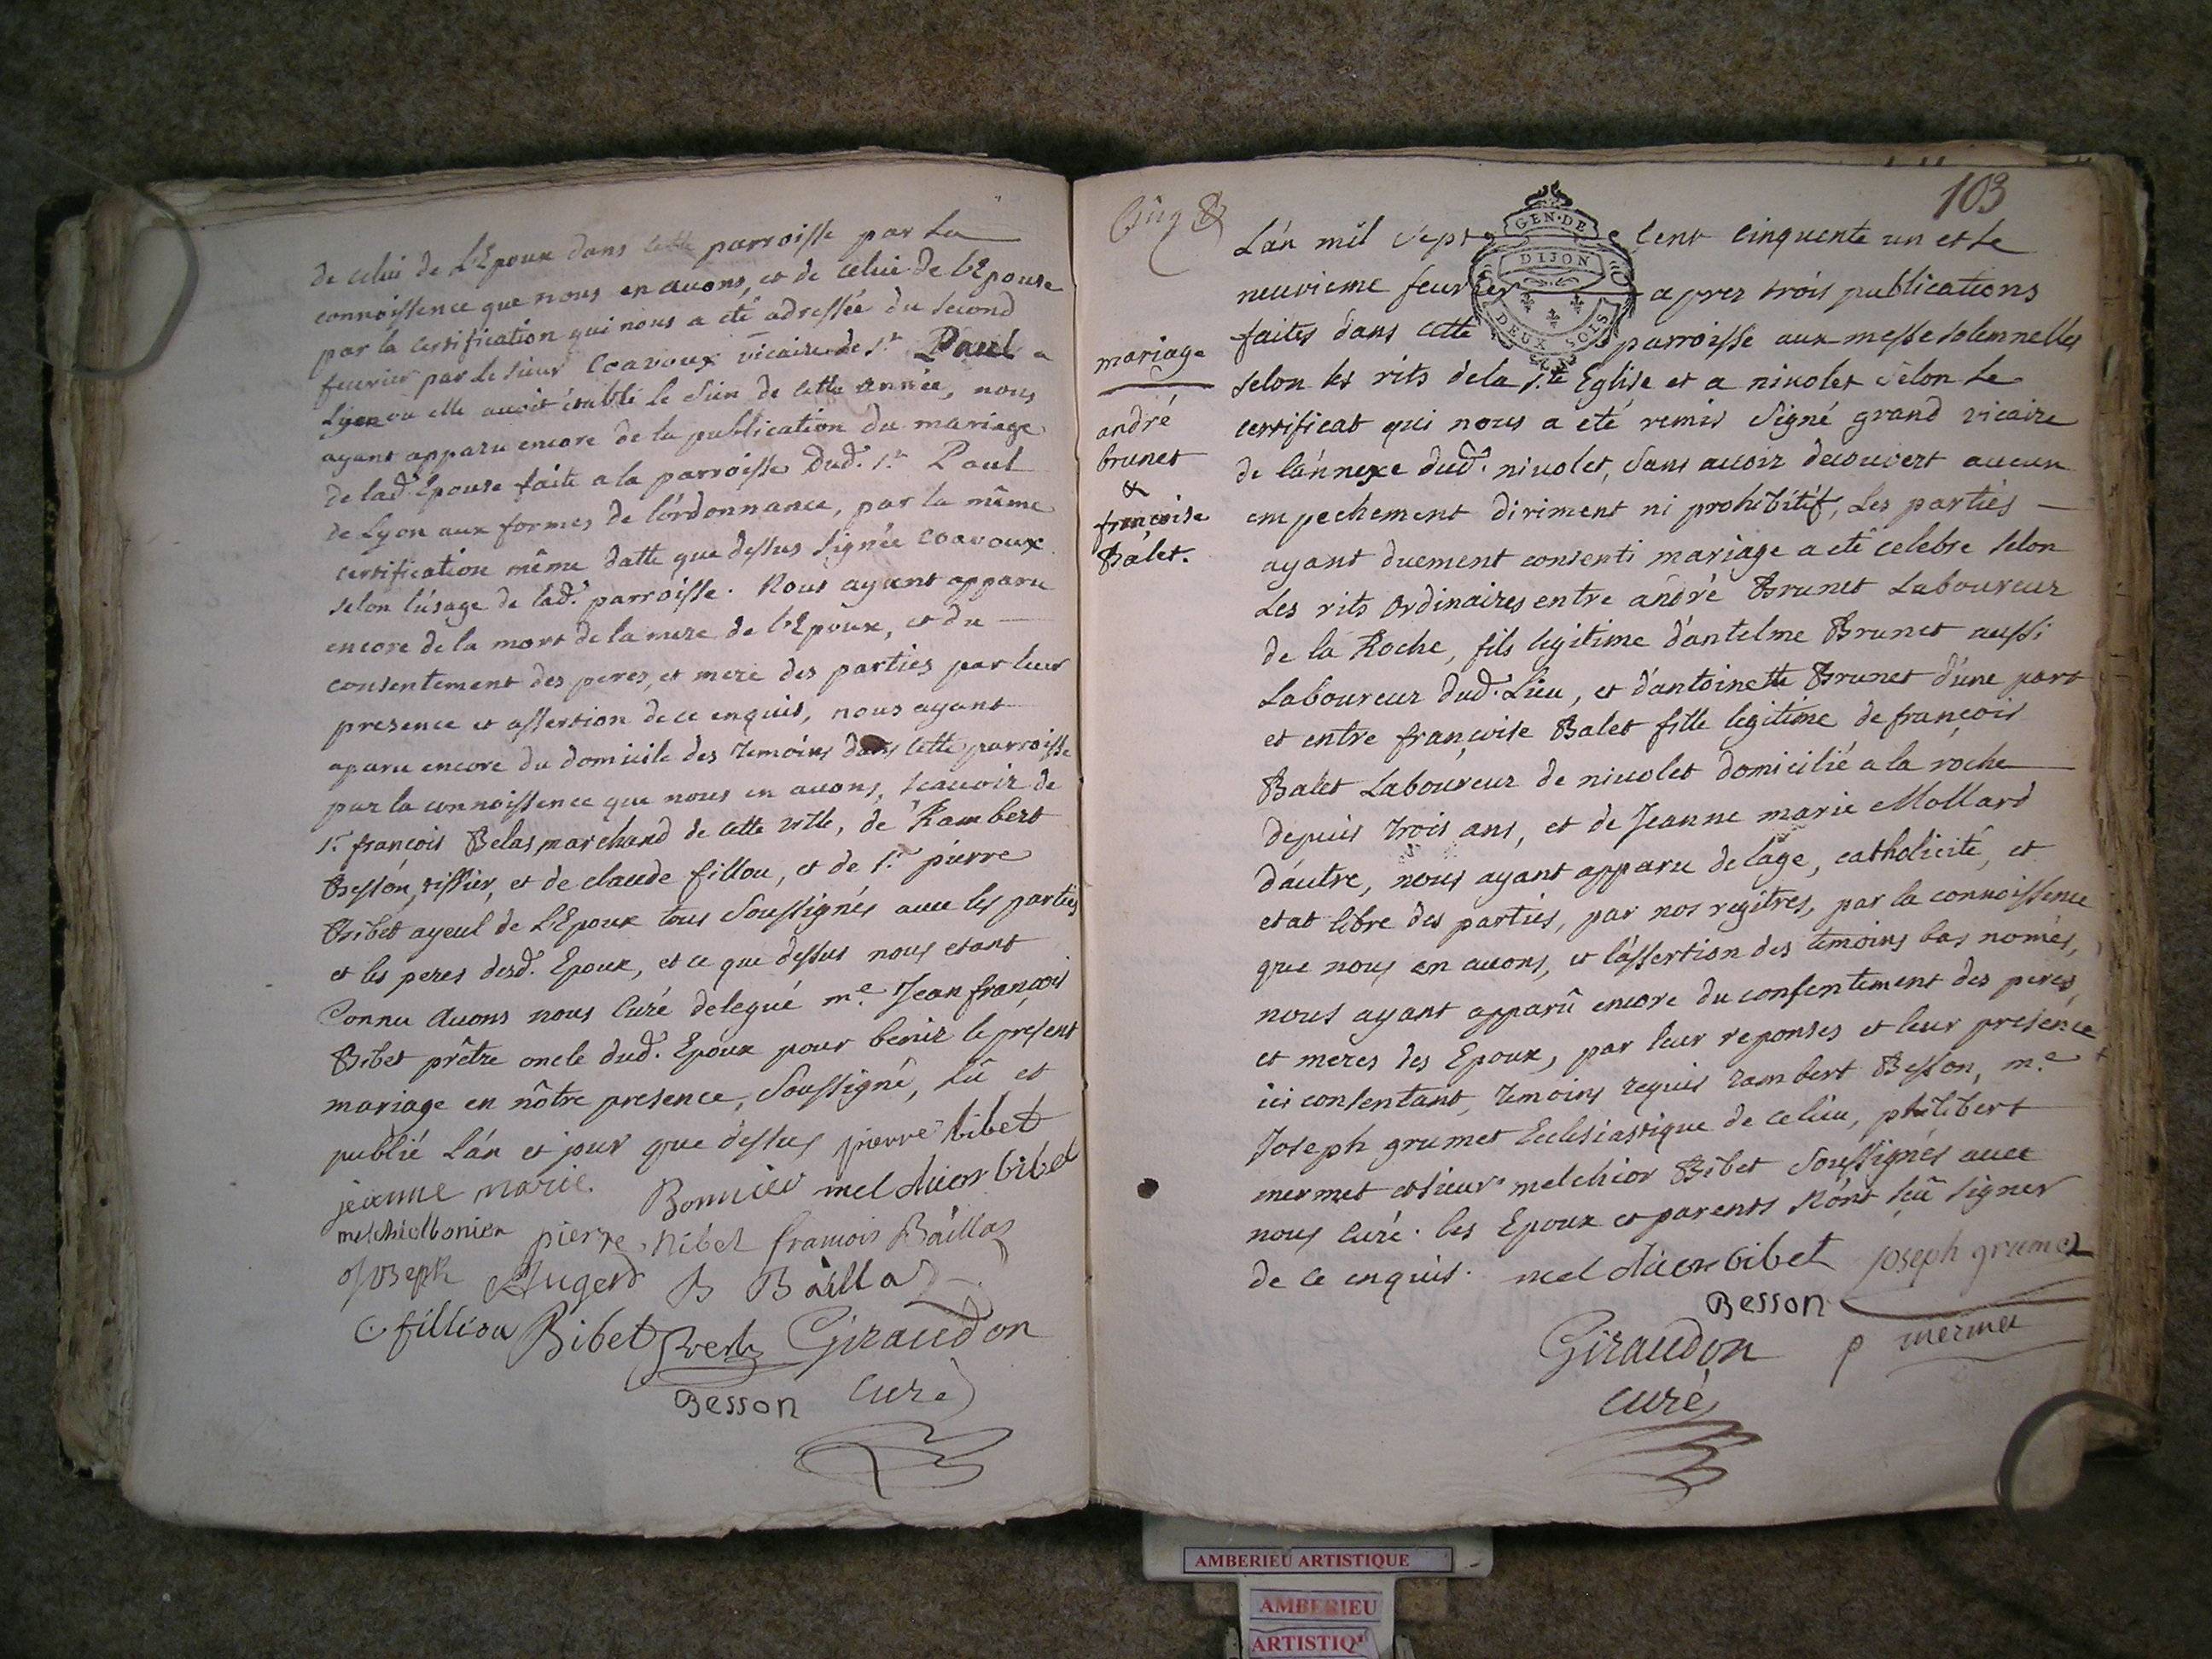 de celui de L'Epoux dans cette parroisse par La
connoissence que nous en avons, et de celui de l'Epouse
par la certification qui nous a eté adressée du second
feuvrier par le sieur Coavoux vicaire de st. Paul a
Lyon ou elle avoit établi le sien de cette année, nous
ayant apparu encore de la publication du mariage
de lad. Epouse faite a la parroisse dud. st. Paul
de Lyon aux formes de l'ordonnance, par la même
certification même datte que dessus signée Coavoux
selon l'usage de lad. parroisse. Nous ayant apparu
encore de la mort de la mere de l'Epoux, et du
consentement des peres, et mere des parties par leur
presence et assertion de ce enquis, nous ayant
aparu encore du domicile des temoins dans cette parroisse
par la connoissence que nous en avons, scavoir de
sr. françois Belas marchand de cette ville, de Rambert
Besson, tissier, et de claude fillou, et de sr. pierre
Bibet ayeul de L'Epoux tous Soussignés avec les parties
et les peres desd. Epoux, et ce que dessus nous etant
Connu Avons nous Curé delegué me. Jean françois
Bibet prêtre oncle dud. Epoux pour benir le present
mariage en nôtre presence, Soussigné, Lû et
publié L'án et jour que dessus pierre bibet
jeanne marie Bonnier melchior bibet
melchiolbonier pierre Bibet framois Baillas
joseph Augerd B Bailla
C filliou Bibet Giraudon
Besson Curé
103
L'án mil sept cent cinquente un et le
GEN·DE
DIJON
DEUX SOLS
neuvieme feuvrier apres trois publications
faites dans cette parroisse aux messe solemnelles
mariage
selon les rits de la ste Eglise et a nivolet selon le
certificat qui nous a eté remis signé grand vicaire
andré
brunet
&
françoise
Balet.
de l'ánnexe dud. nivolet, sans avoir decouvert aucun
empechement diriment ni prohibitif, Les parties
ayant duement consenti mariage a eté celebre selon
Les rits ordinaires entre andré Brunet Laboureur
de la Roche, fils legitime d'antelme Brunet aussi
Laboureur dud. Lieu, et d'antoinette Brunet d'úne part
et entre françoise Balet fille legitime de françois
Balet Laboureur de nivolet domicilié a la roche
depuis trois ans, et de Jeanne marie Mollard
d'áutre, nous ayant apparu de l'age, catholicité, et
etat libre des parties, par nos regitres, par la connoissence
que nous en avons, et l'ássertion des temoins bas només,
nous ayant apparû encore du consentement des peres,
et meres des Epoux, par leur reponses et leur presence
ici consentant, temoins requis rambert Besson, me.
Joseph grumet Ecclesiastique de ce lieu, philibert
mermet et sieur melchior Bibet Soussignés avec
nous Curé. les Epoux et parents N'ont sçû signer
de ce enquis. melchior bibet joseph grumet
Besson
Giraudon p mermet
curé
AMBERIEU ARTISTIQUE
AMBERIEU
ARTISTIQ